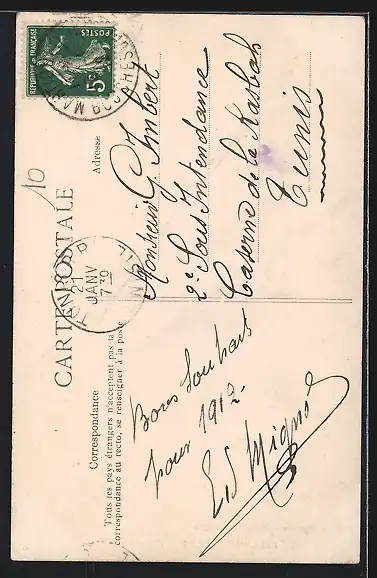 CARTE POSTALE
Correspondance
Tous les pays étrangers n'acceptent pas la
correspondance au recto, se renseigner à la poste
Adresse
RÉPUBLIQUE FRANÇAISE
POSTES
5c
21
JANV
7 30
10
Bons Souhaits
pour 1912
Ed Mignot
Monsieur G. Imbert
2e Sous Intendance
Caserne de la Kasbah
Tunis